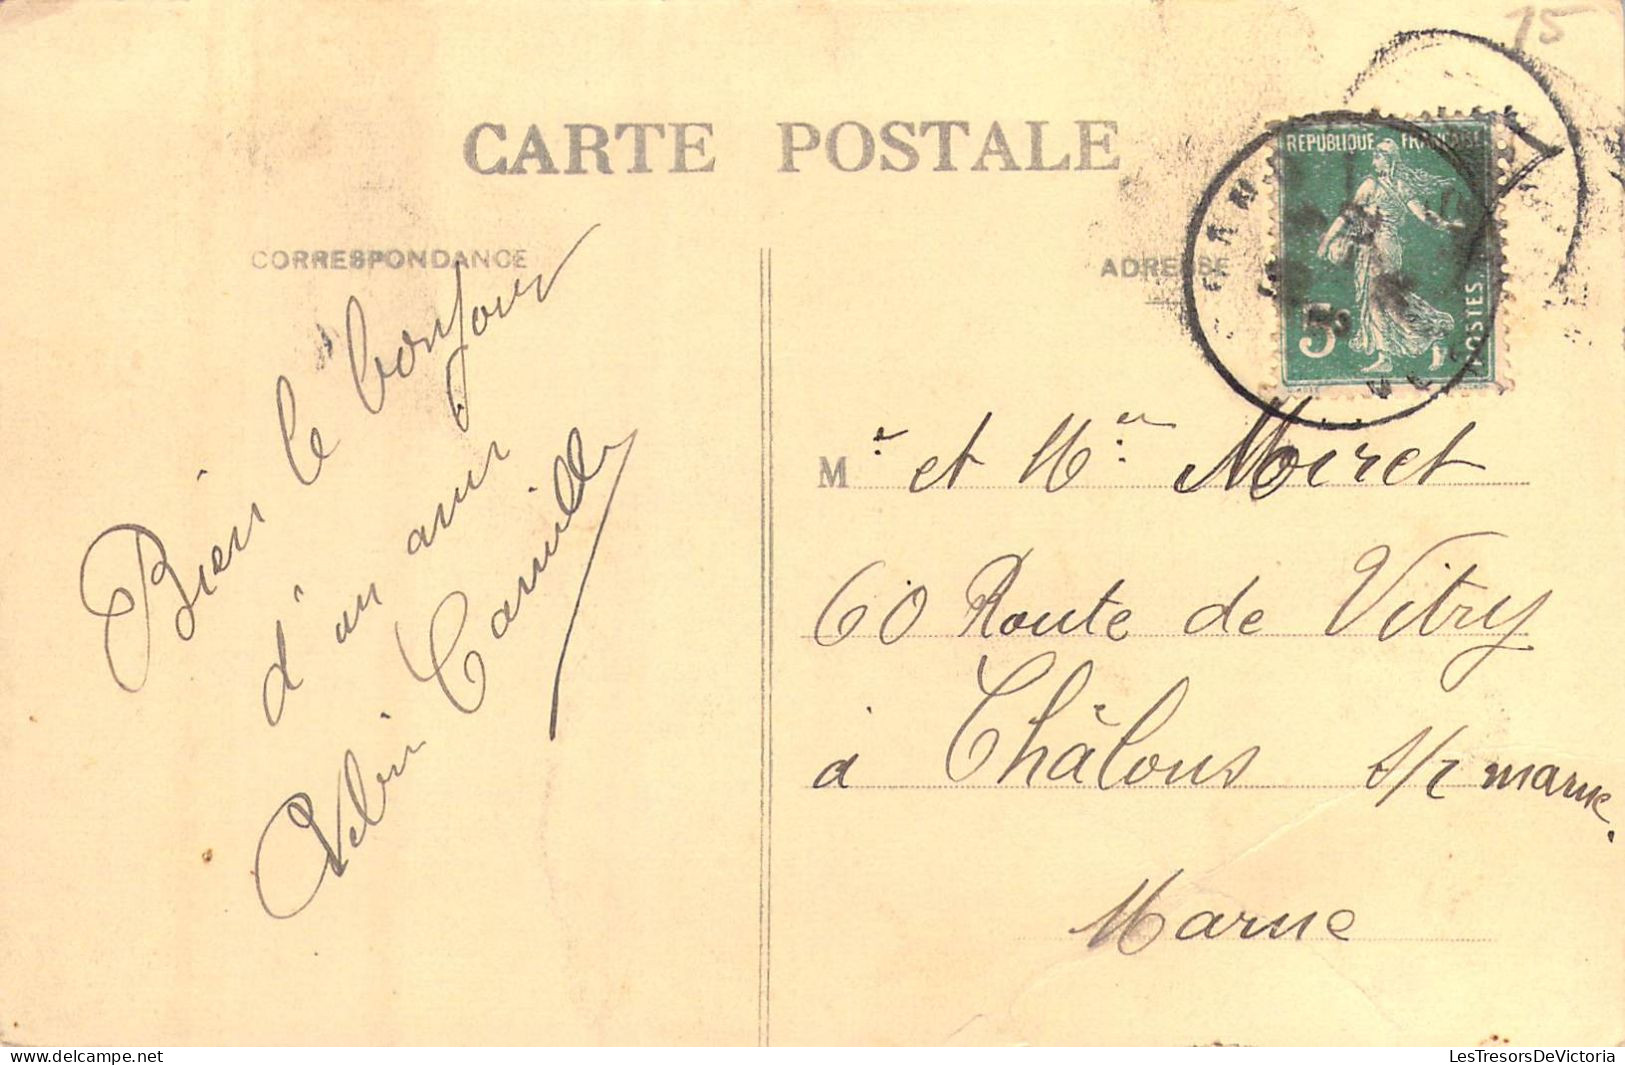 15
CARTE POSTALE
REPUBLIQUE FRANÇAISE
5c
POSTES
CORRESPONDANCE
ADRESSE
Bien le bonjour
d'un ami
Camille
M r et Mme Moiret
60 Route de Vitry
à Châlons s/r marne.
Marne
delcampe.net
LesTresorsDeVictoria